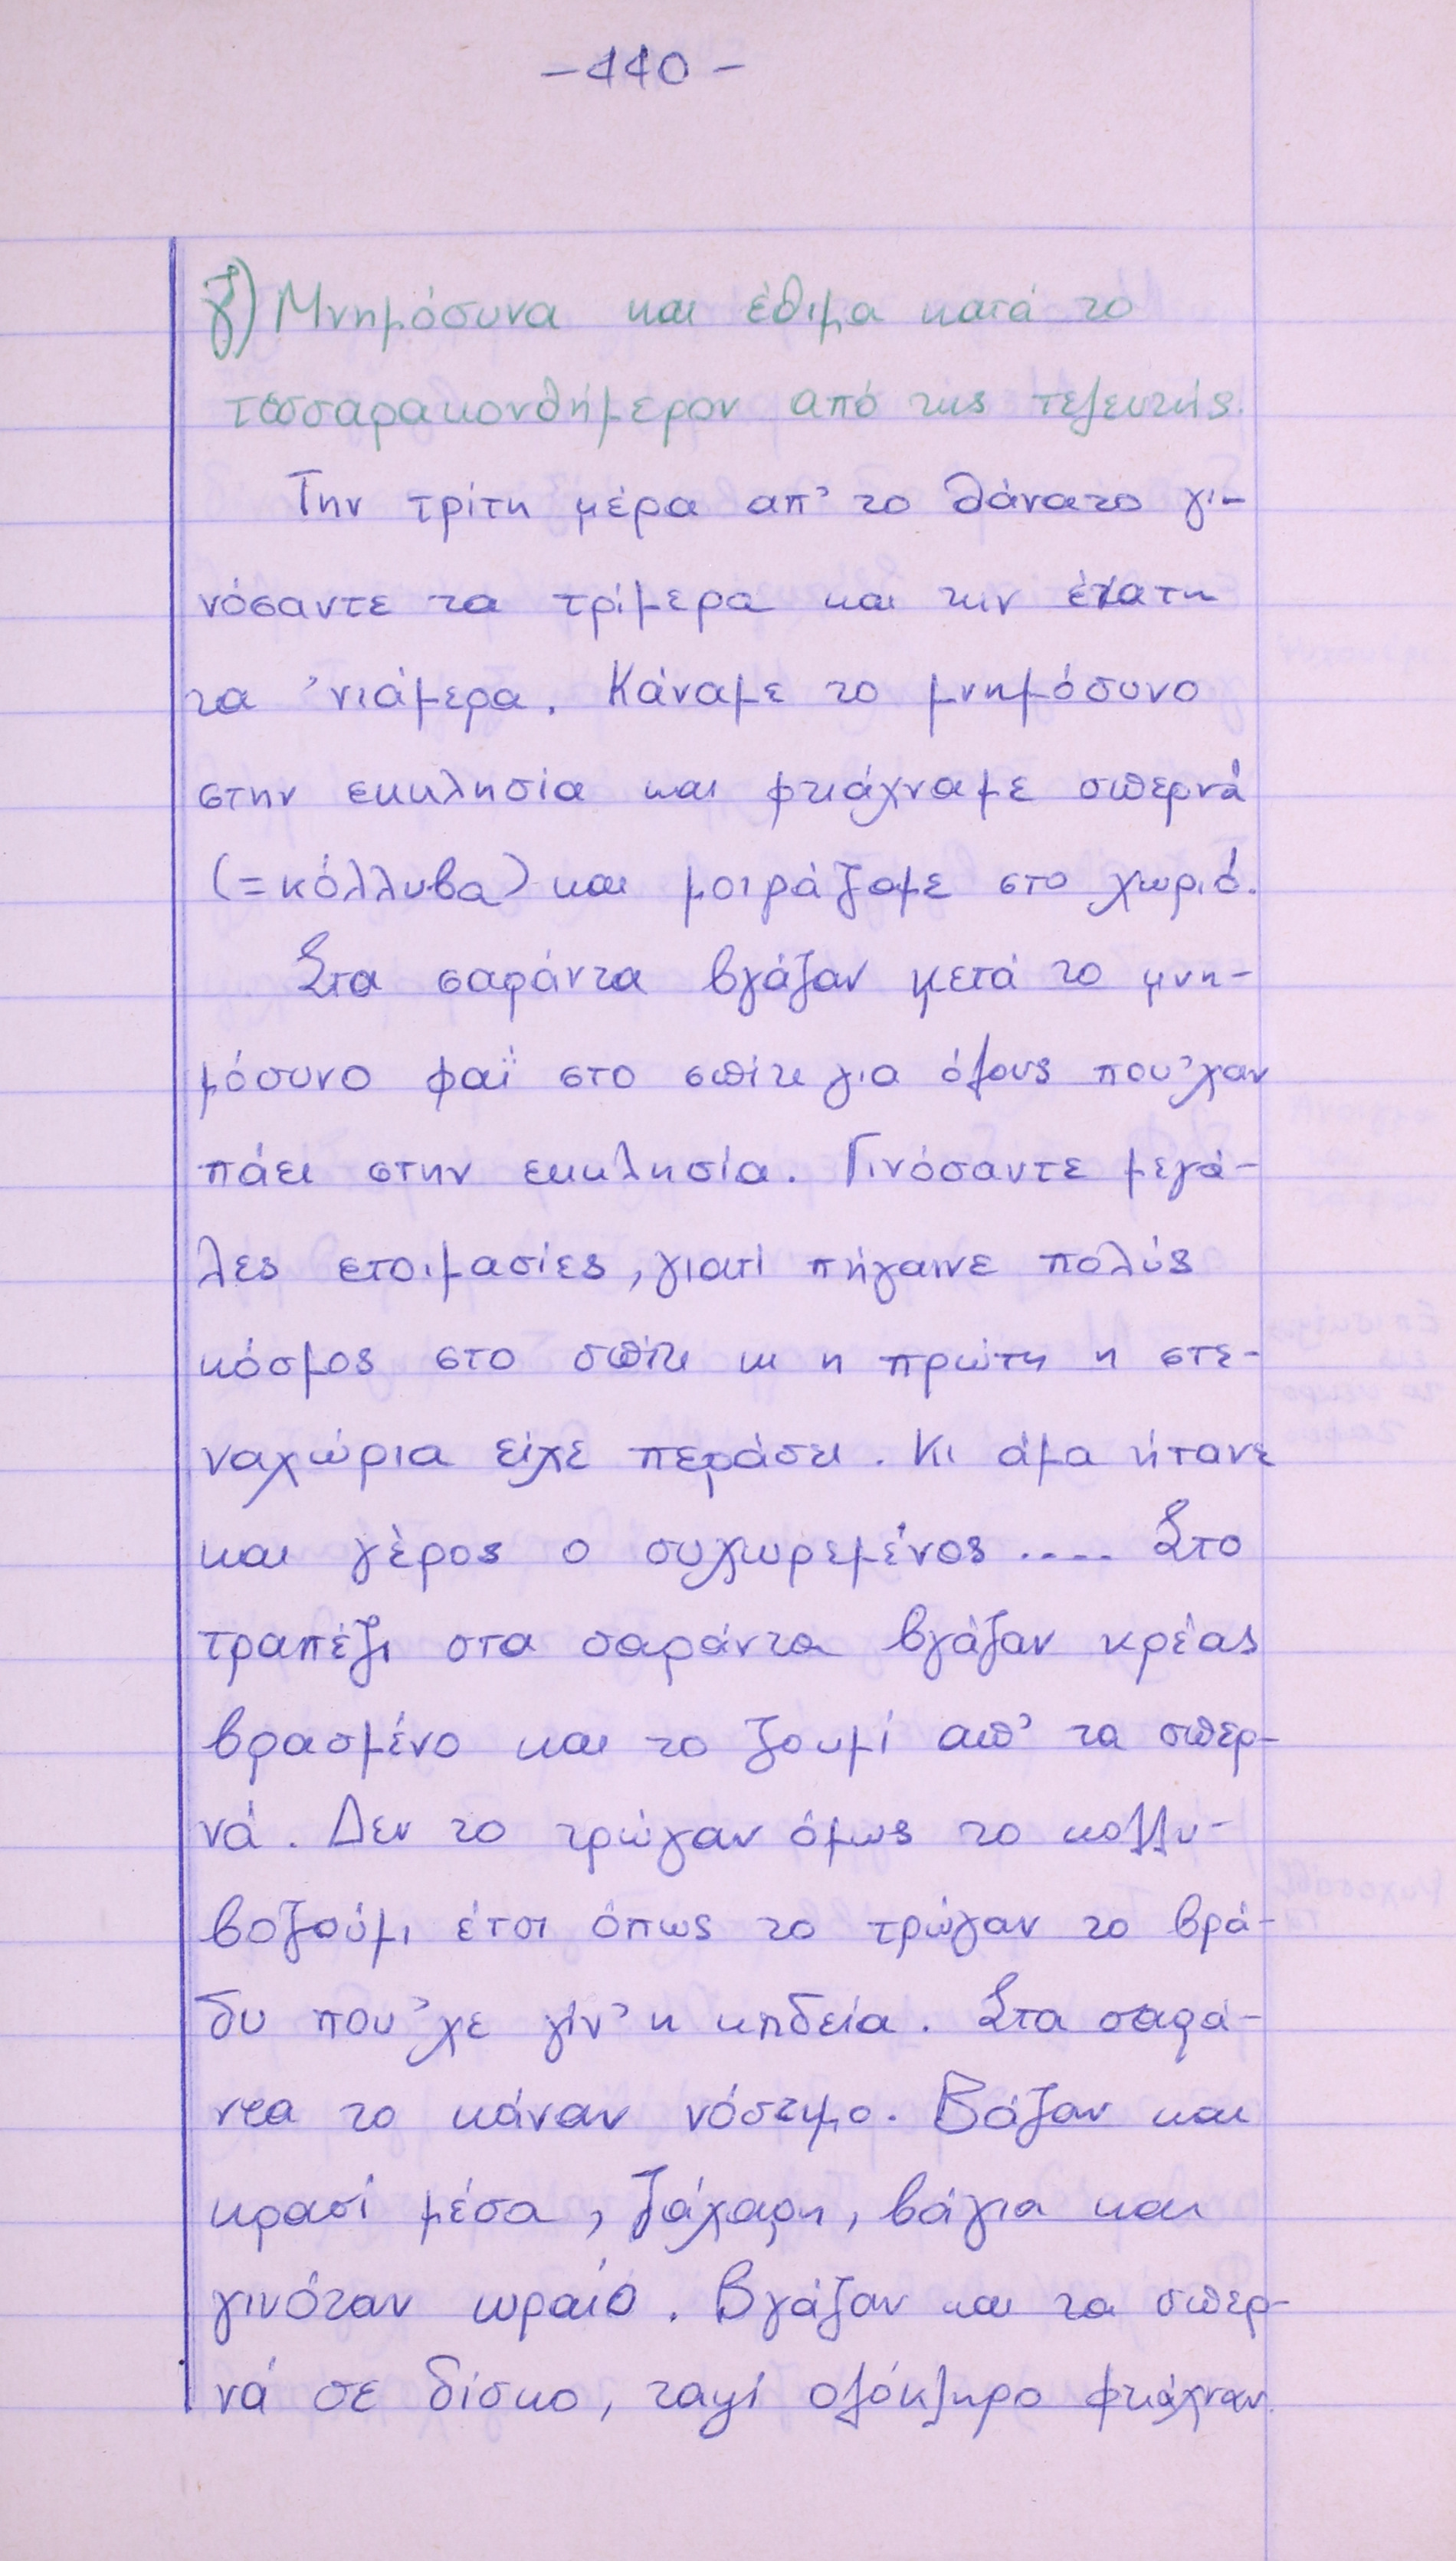 -440-
γ) Μνημόσυνα και έθιμα κατά το
τεσσαρακονθήμερον από της τελευτής.
Την τρίτη μέρα απ' το θάνατο γι-
νόσαντε τα τρίμερα και την ένατη
τα 'νιάμερα. Κάναμε το μνημόσυνο
στην εκκλησία και φτιάχναμε σπερνά
(=κόλλυβα) και μοιράζαμε στο χωριό.
Στα σαράντα βγάζαν μετά το μνη-
μόσυνο φαΐ στο σπίτι για όλους που'χαν
πάει στην εκκλησία. Γινόσαντε μεγά-
λες ετοιμασίες, γιατί πήγαινε πολύς
κόσμος στο σπίτι κι η πρώτη η στε-
ναχώρια είχε περάσει. Κι άμα ήτανε
και γέρος ο συχωρεμένος .... Στο
τραπέζι στα σαράντα βγάζαν κρέας
βρασμένο και το ζουμί απ' τα σπερ-
νά. Δεν το τρώγαν όμως το κολλυ-
βοζούμι έτσι όπως το τρώγαν το βρά-
δυ που'χε γίν' η κηδεία. Στα σαρά-
ντα το κάναν νόστιμο. Βάζαν και
κρασί μέσα, ζάχαρη, βάγια και
γινόταν ωραίο. Βγάζαν και τα σπερ-
νά σε δίσκο, ταψί ολόκληρο φτιάχναν